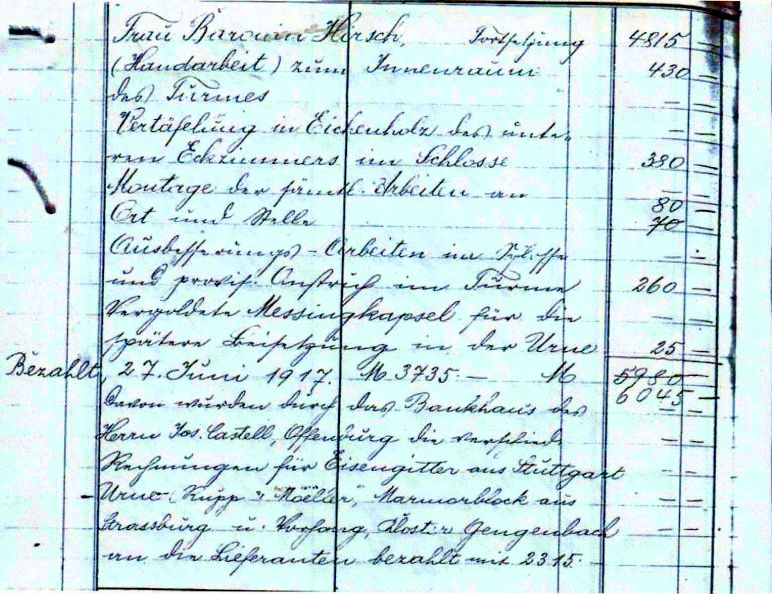 Frau Baronin Hirsch, Fortsetzung 4815 —
(Handarbeit) zum Innenraum 430 —
des Turmes — —
Vertäfelung in Eichenholz des unte- — —
ren Eckzimmers im Schlosse 380 —
Montage der sämtl. Arbeiten an — —
Ort und Stelle 80 70 —
Ausbesserungs-Arbeiten im Schlosse — —
und provis. Anstrich im Turme 260 —
Vergoldete Messingkapsel für die — —
spätere Beisetzung in der Urne 25 —
Bezahlt, 27. Juni 1917. M 3735.— M 5980 —
Davon wurden durch das Bankhaus des 6045 —
Herrn Jos. Castell, Offenburg die verschied. — —
Rechnungen für Eisengitter aus Stuttgart — —
— Urne (Kupp & Möller, Marmorblock aus — —
Strassburg u. Vorhang, Kloster Gengenbach — —
an die Lieferanten bezahlt mit 2315.— — —